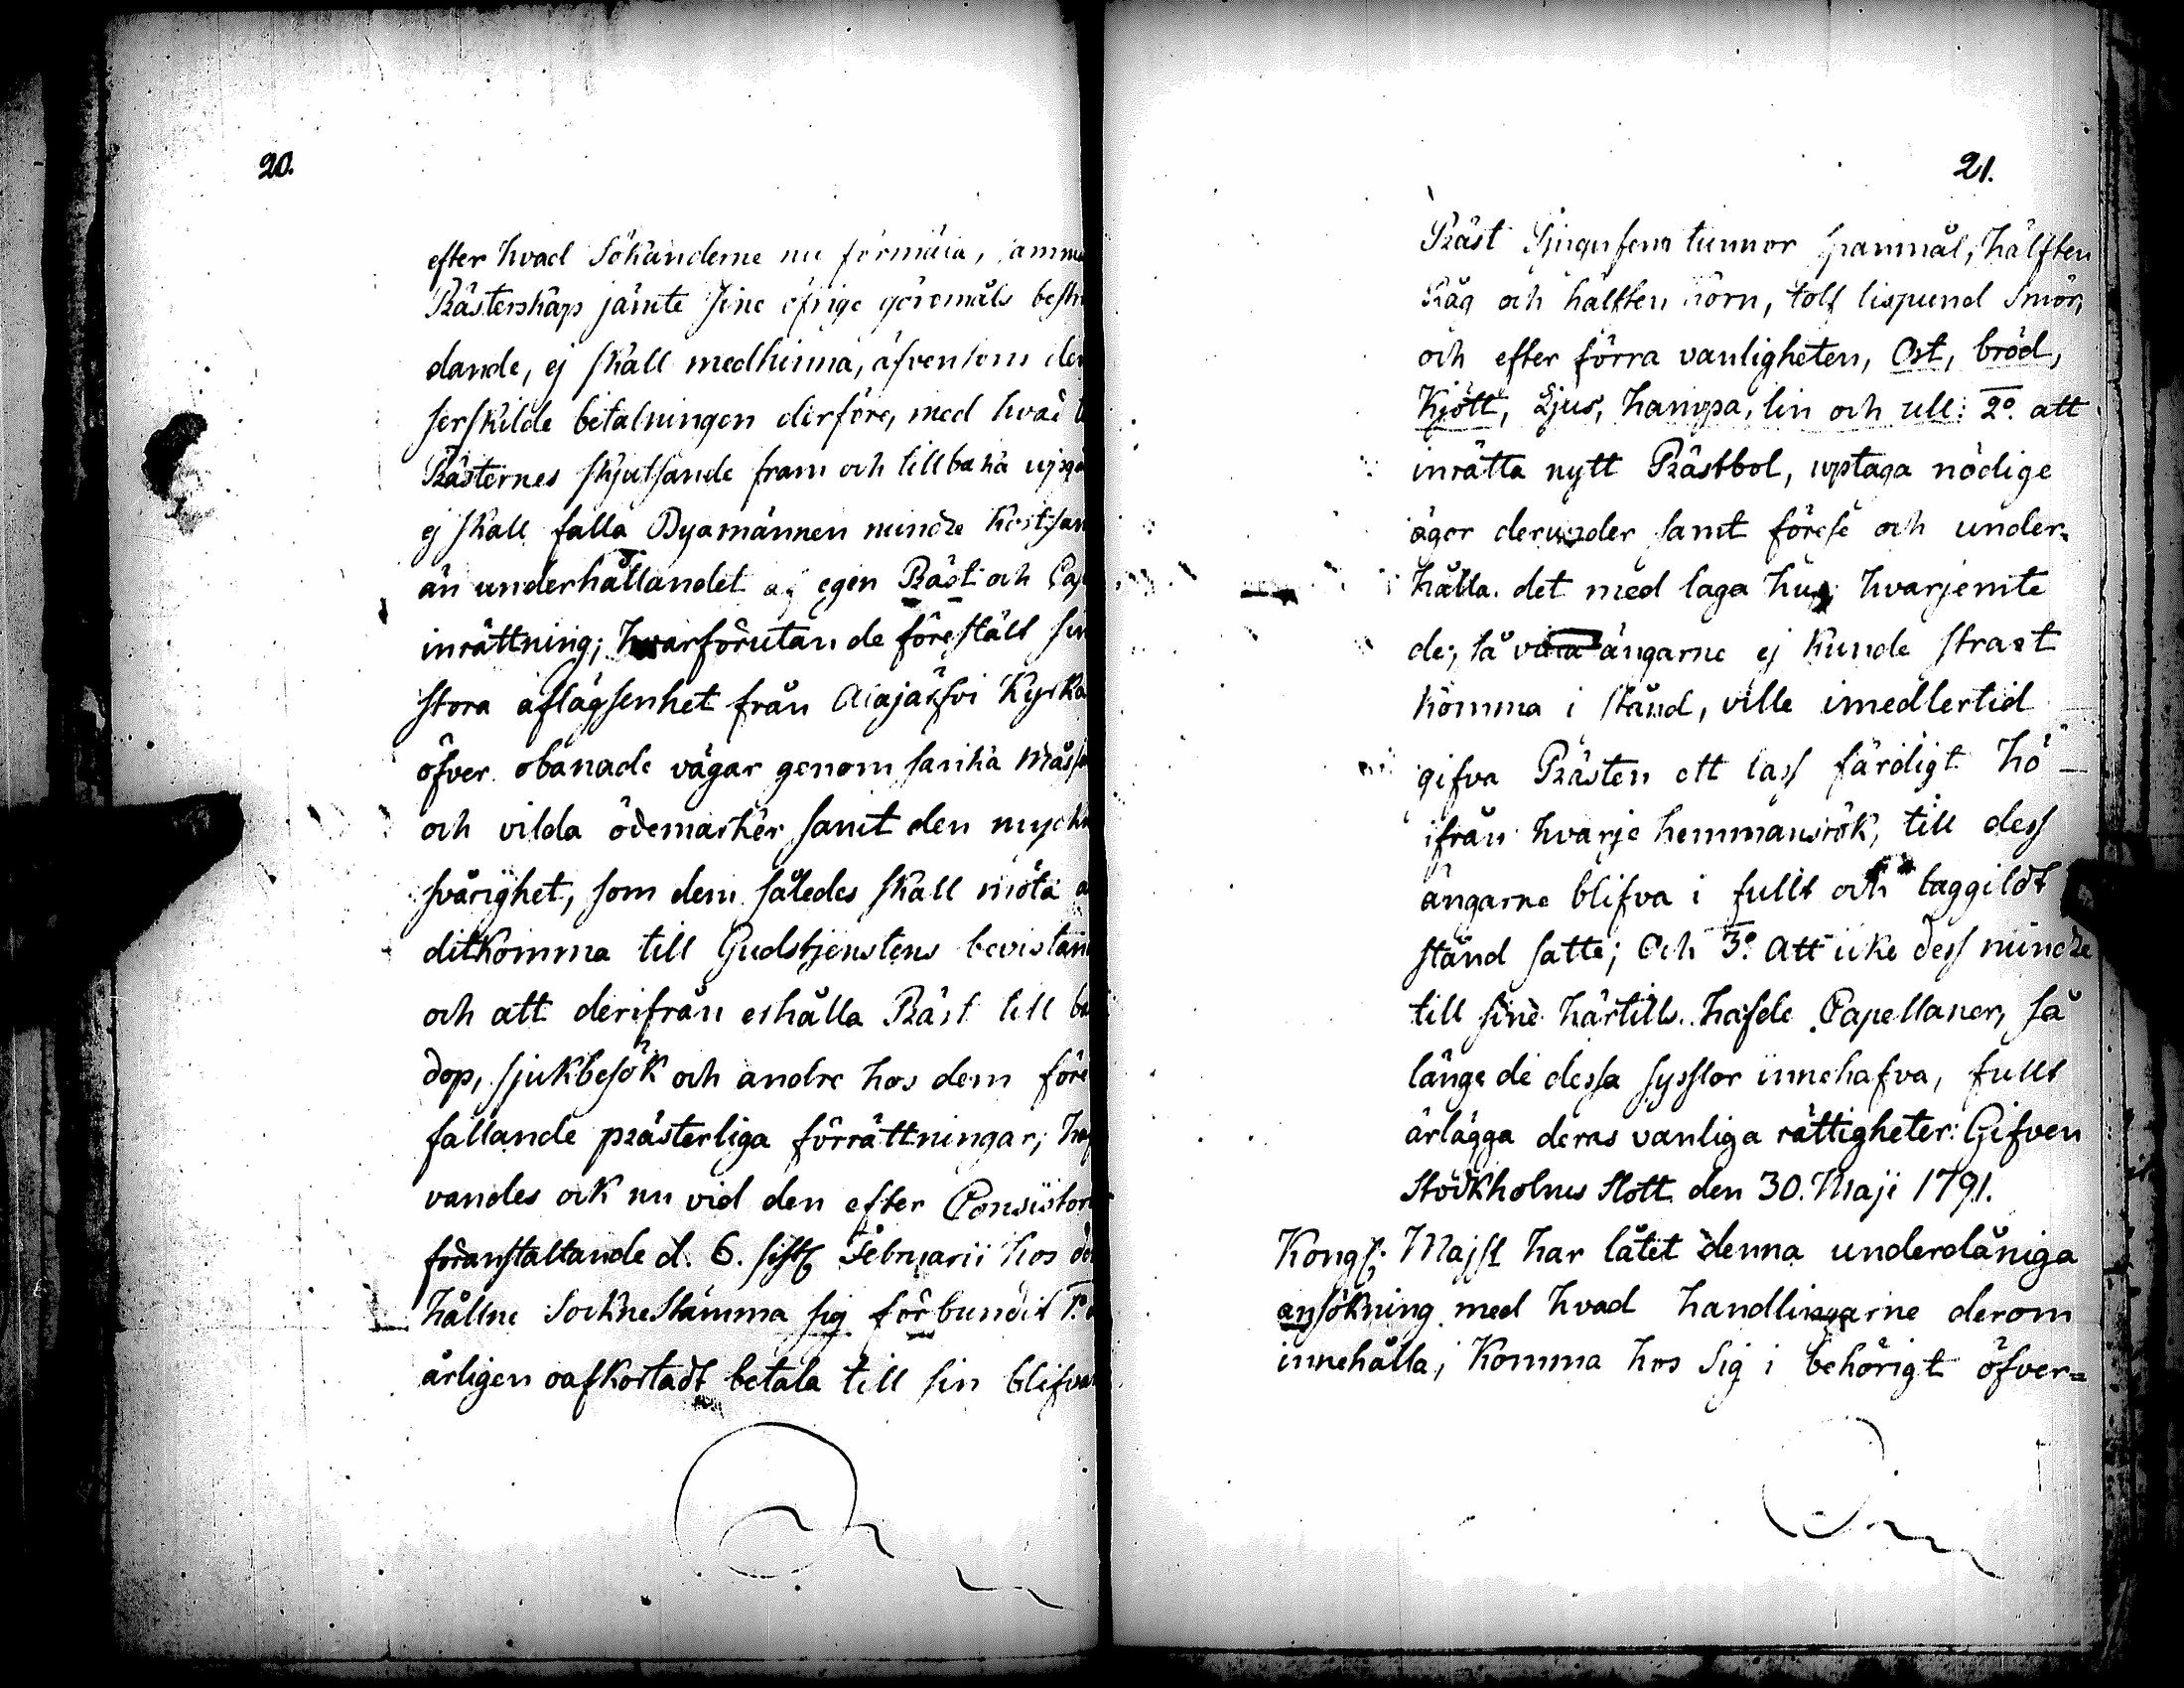 20.
efter hvad Sökanderne nu förmäla, samma
Prästerskap jämte sine öfrige göromåls bestri
dande, ej skall medhinna, äfvensom den
serskilde betalningen derföre, med hvad
Prästernes skjutsande fram och tillbaka upgå
ej skall falla Byamännen mindre kostsam
än underhållandet af egen Präst och Cap
inrättning; hvarförutan de förestält sin
stora aflägsenhet från Aiajärfvi Kyrka
öfver obanade vägar genom sanka Måssar
och vilda ödemarker samt den mycken
svårighet, som dem således skall möta a
ditkomma till Gudstjenstens bevistan
och att derifrån erhålla Präst till ba
dop, sjukbesök och andre hos dem före
fallande prästerliga förrättningar; haf
vandes ock nu vid den efter Consistor
föranstaltande d. 6. sistl Februarii hos de
hållne Sockne Stämma sig förbundit 1:o
årligen oafkortadt betala till sin blifvan
21.
Präst Tjugufem tunnor spannmål, hälften
Råg och hälften korn, tolf lispund Smör,
och efter förra vanligheten, Ost, bröd,
Kjött, Ljus, hampa, lin och ull: 2:o att
inrätta nytt Prästbol, uptaga nödige
ägor derunder samt förese och under=
hålla det med laga hus; hvarjemte
de, så vida ängarne ej kunde straxt
komma i stånd, ville imedlertid
gifva Prästen ett lass färdigt hö
ifrån hvarje hemmansrök, till dess
ängarne blifva i fullt och laggildt
stånd satte; Och 3:o Att icke dess mindre
till sine härtills hafde Capellaner, så
länge de dessa sysslor innehafva, fullt
ärlägga deras vanliga rättigheter: Gifven
Stockholms Slott den 30. Maji 1791.
Kongl: Majst har låtet denna underdåniga
ansökning med hvad handlingarne derom
innehålla, komma hos Sig i behörigt öfver=